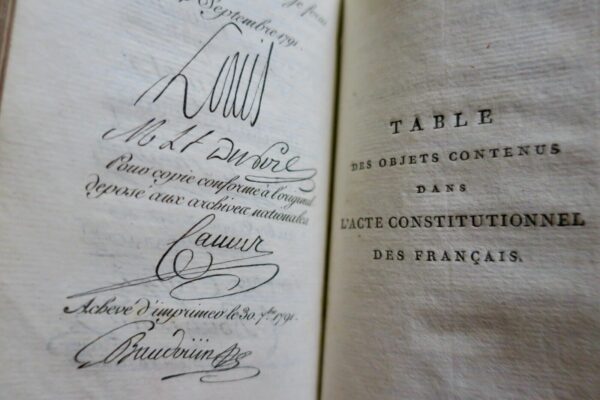 je
Septembre 1791.
Louis
M L F Du Port
Pour copie conforme à l'original
deposé aux archives nationales
Camus
Achevé d'imprimer le 30. 7.bre 1791.
Baudouin
TABLE
DES OBJETS CONTENUS
DANS
L'ACTE CONSTITUTIONNEL
DES FRANÇAIS.